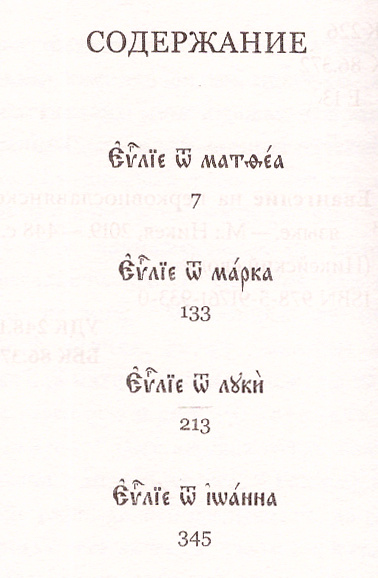 СОДЕРЖАНИЕ
Є҆ѵⷢ҇лїе ѿ матѳе́а
7
Є҆ѵⷢ҇лїе ѿ ма́рка
133
Є҆ѵⷢ҇лїе ѿ лꙋкѝ
213
Є҆ѵⷢ҇лїе ѿ і҆ѡа́нна
345